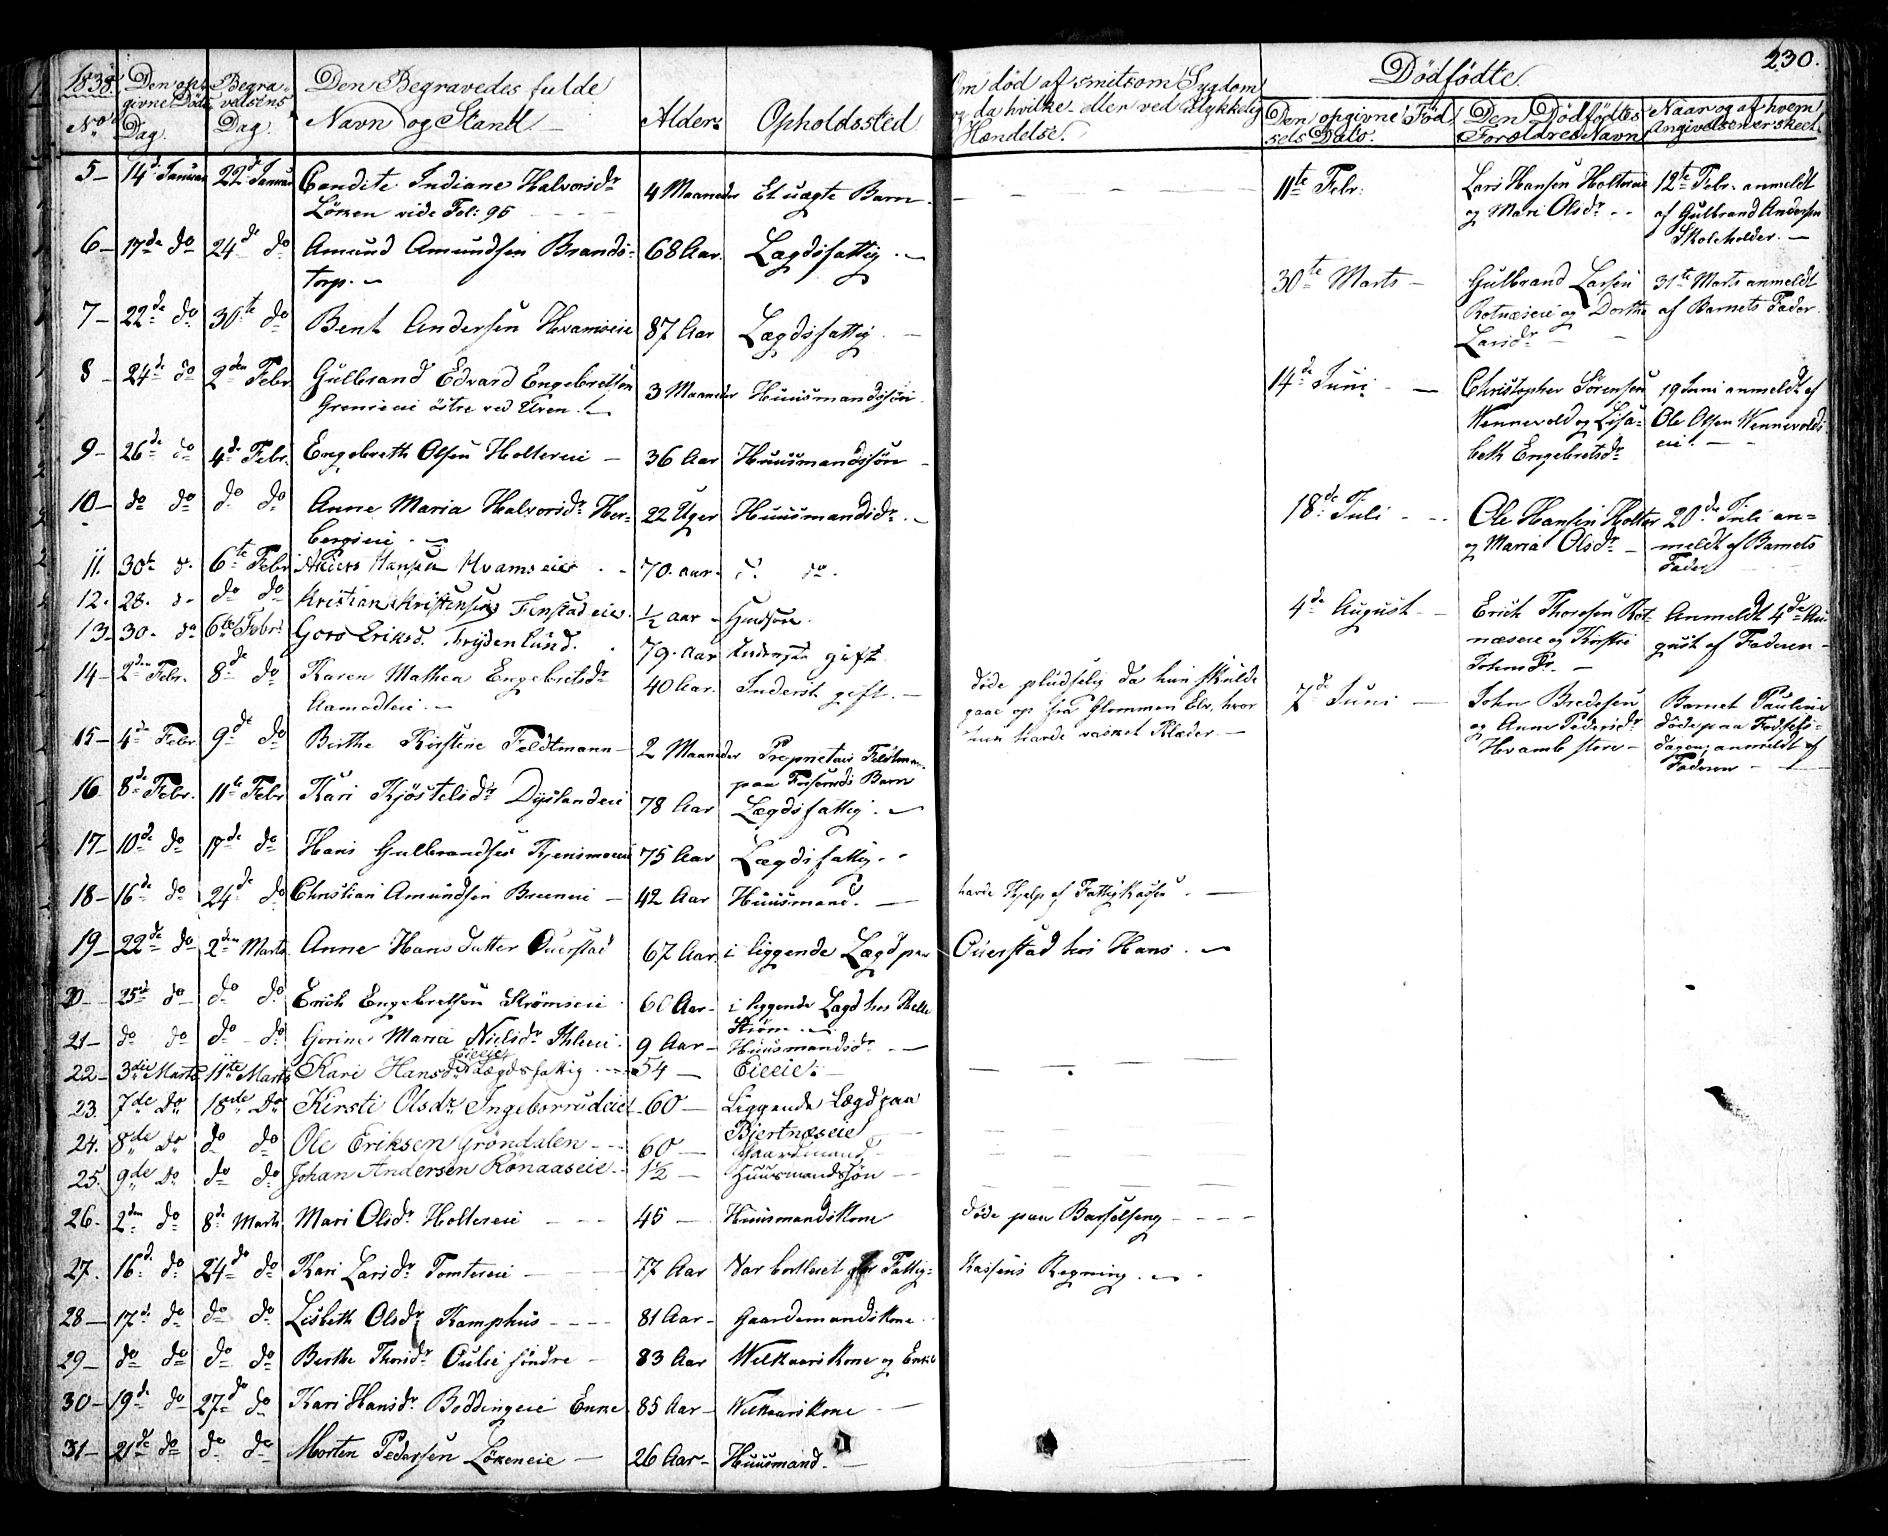 230.
1838.
Den opgivne Døds Dag.
Begravelsens Dag.
Den Begravedes fulde
No
Navn og Stand
Alder
Opholdssted
Om død af smitsom Sygdom
og da hvilken eller ved ulykkelig
Hændelse.
Dødfødte.
Den opgivne Fødsels Dato.
Den Dødfødtes Forældres Navn
Naar og af hvem Angivelsen er skeet.
5 14de Januar 22de Januar Candite Indiane Halvorsdr 4 Maaneder Et uægte Barn
Löken vide Fol: 95
6 17de do 24de do Amund Amundsen Brands= 68 Aar Lægdsfattig
torp.
7 22de do 30te do Bent Andersen Hvamseie 87 Aar Lægdsfattig
8 24de do 2den Febr Gulbrand Edvard Engebretsen 3 Maaneder Huusmandssön
östre ved Elven.
9 26de do 4de Febr. Engebreth Olsen Holtereie 36 Aar Huusmandssön
10 do do do do Anne Maria Halvorsdr Her= 22 Uger Huusmandsdr
bergseie
11. 30te d. 6te Febr Anders Hansen Hvamseier 70. aar d. do.
12. 28. d. do do Kristian Kristensen Finstadeier. 1/2 aar
13 30. do 6te Febr Goro Eriksd. Frydenlund. 79. Aar gift
14 2den Febr. 8de do Karen Mathea Engebretsdr 40 Aar. Inderst gift.
Aamodteie
døde pludselig da hun skulde
gaae op fra Glommen Elv, hvor
hun havde vasket Klæder.
15 4de Febr 9de do Birthe Kirstine Feldtmann 2 Maaneder Proprietair Feldtman
paa Barn
16 8de Febr. 11te Febr Kari Kjöstelsdr Dyslandeie 78 Aar Lægdsfattig.
17 10de do 17de do Hans Gulbrandsen 75 Aar Lægdsfattig
18 16de do 24de do Christian Amundsen 42 Aar Huusmand. havde Hjelp af Fattigkassen.
19 22de do 2den Marts Anne Hansdatter Ouerstad 67 Aar i liggende Lægd paa Ouerstad hos Hans.
20 25de do do do Erich Engebretsen Strömseie 60 Aar i liggende Lægd hos
Ström
21 do do do do Gorine Maria Nielsdr 9 Aar Huusmandsdr
22 3die Marts 11te Marts Kari Hansdr Eieeie Lægdsfattig 54 Eieeie.
23. 7de do 18de do Kirsti Olsdr Ingeborrudeie 60 Liggende Lægd paa
Bjertnæseie
24. 8de do do do Ole Eriksen Gröndalen 60 Gaardmand
25. 9de do do do Johan Andersen Rönaaseie 1 1/2 Huusmandssön
26. 2den do 8de Marts Mari Olsdr Holtereie 45 Huusmandskone döde paa Barselseng
27. 16d. do 24de do Kari Larsdr Tomtereie 77 Aar Var bortleiet for Fattig= Kassens Regning.
28 17d. do do do Lisbeth Olsdr Kamphus 81 Aar Gaardemandskone
29 do do do do Berthe Thorsdr Oulie söndre 83 Aar Wilkaarskone og Enke
30 19de do 27de do Kari Hansdr Boddingeie Enke 85 Aar Wilkaarskone
31 21de do do do Morten Pedersen Lökeneie 26 Aar Huusmand
11te Febr. Lars Hansen Holtereie 12te Febr. anmeldt
og Mari Olsdr af Gulbrand Andersen
Skoleholder.
30te Marts Gulbrand Larsen 31te Marts anmeldt
Rotnæseie og Dorthe af Barnets Fader
Larsdr
14de Juni Christopher Sörensen 19 Juni anmeldt af
Wennevold og Lisa= Ole Olsen Wennevolds
beth Engebretsdr eie.
18de Juli Ole Hansen Holter 20de Juli an=
og Maria Olsdr meldt af Barnets
Fader
4de August Erich Thoresen Rot Anmeldt 4de Au
næseie og Kirstie gust af Faderen
Johnsdr.
7de Juni John Bredesen Barnet Pauline
og Anne Pedersdr döde paa Födsels
Hvamb store dagen; anmeldt af
Faderen